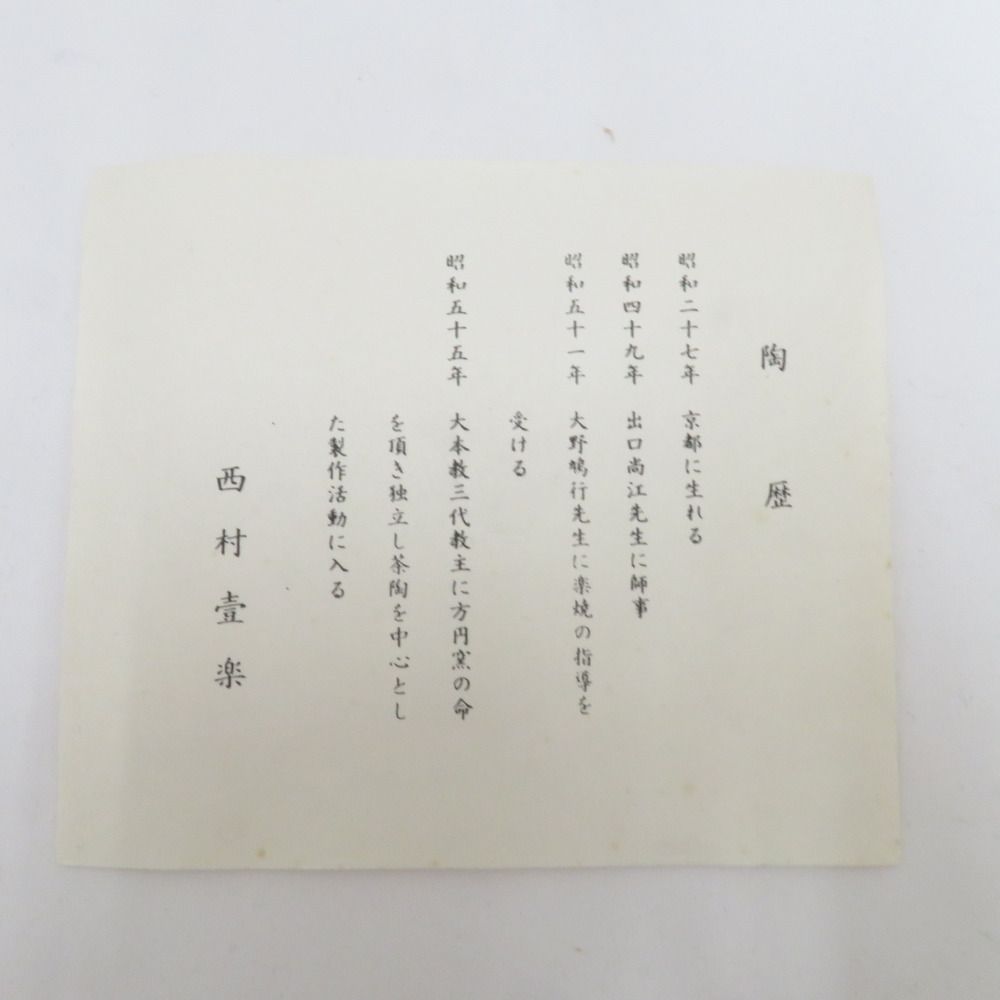 陶歴
昭和二十七年 京都に生れる
昭和四十九年 出口尚江先生に師事
昭和五十一年 大野鳩行先生に楽焼の指導を
受ける
昭和五十五年 大本教三代教主に方円窯の命
を頂き独立し茶陶を中心とし
た製作活動に入る
西村壹楽